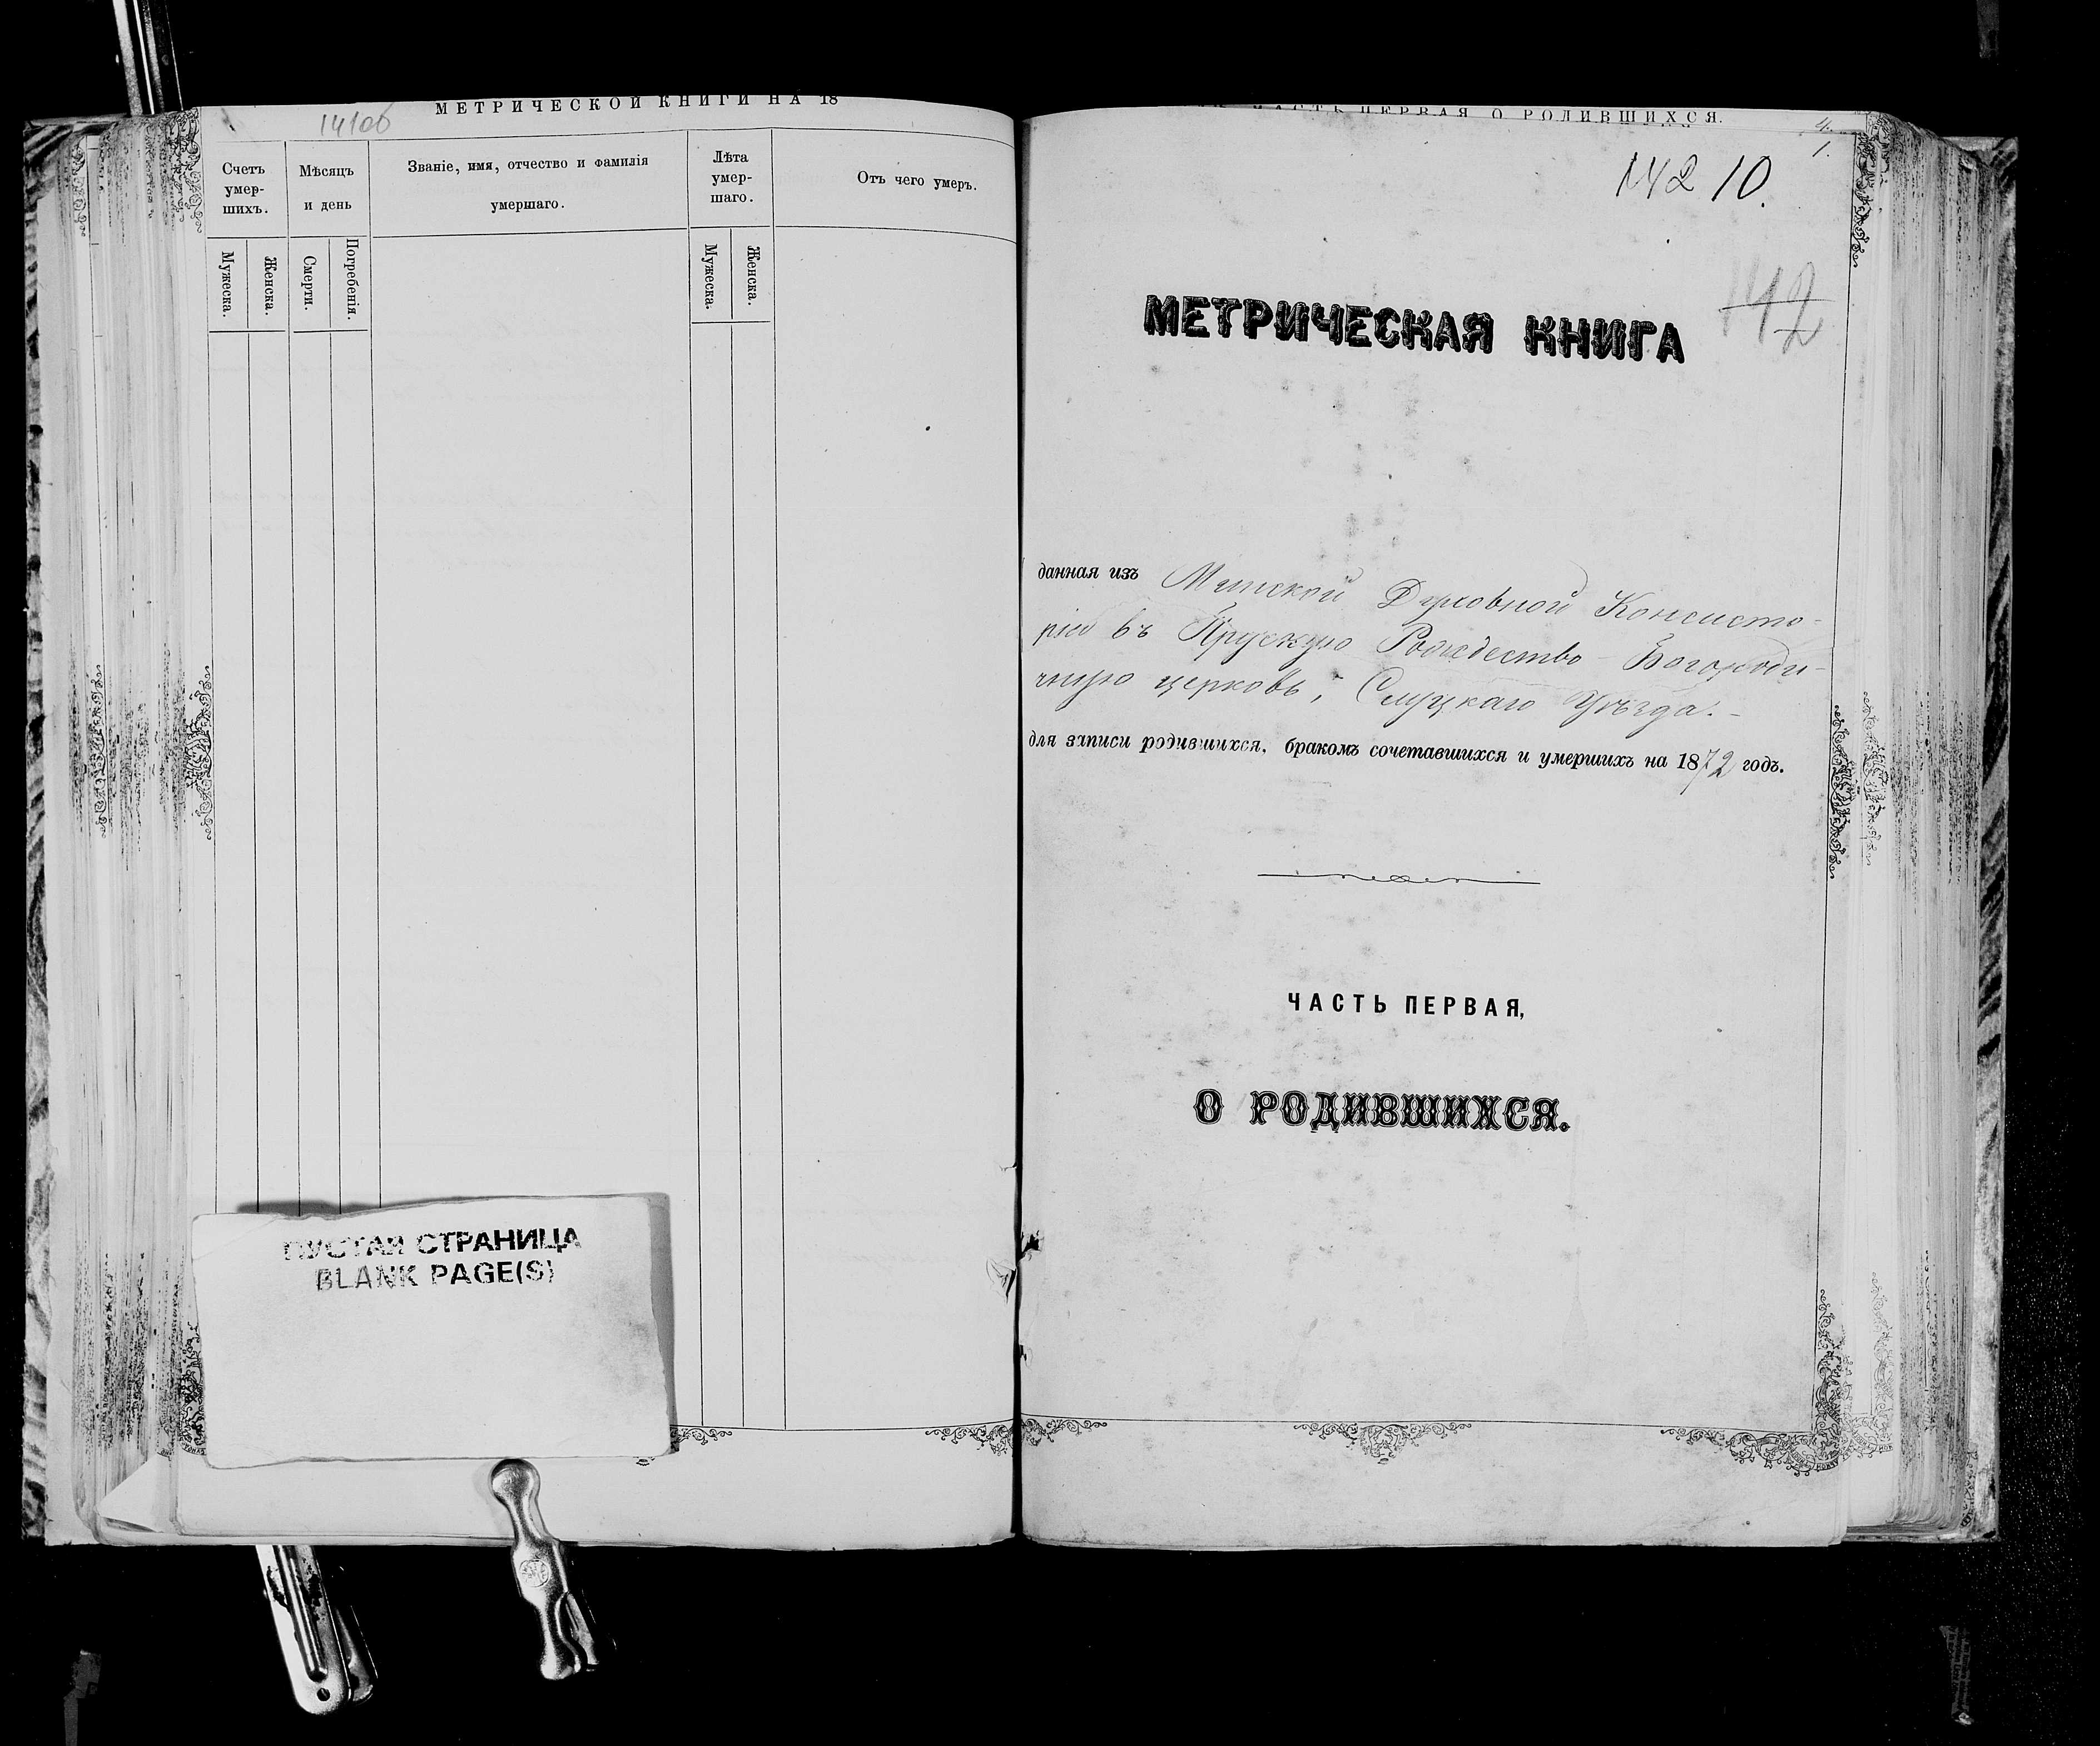 МЕТРИЧЕСКОЙ КНИГИ НА 18
Счетъ умер- шихъ.
Мѣсяцъ и день
Званіе, имя, отчество и фамилія умершаго.
Лѣта умер- шаго.
Отъ чего умеръ.
Мужеска.
Женска.
Смерти.
Погребенія.
Мужеска.
Женска.
ПУСТАЯ СТРАНИЦА
BLANK PAGE(S)
ЧАСТЬ ПЕРВАЯ О РОДИВШИХСЯ.
4.
1.
142 10.
142
МЕТРИЧЕСКАЯ КНИГА
данная изъ Минской Духовной Консисто-
ріи въ Прускую Рождество-Богороди-
чную церковь, Слуцкаго Уѣзда.-
для записи родившихся, бракомъ сочетавшихся и умершихъ на 1872 годъ.
ЧАСТЬ ПЕРВАЯ,
О РОДИВШИХСЯ.